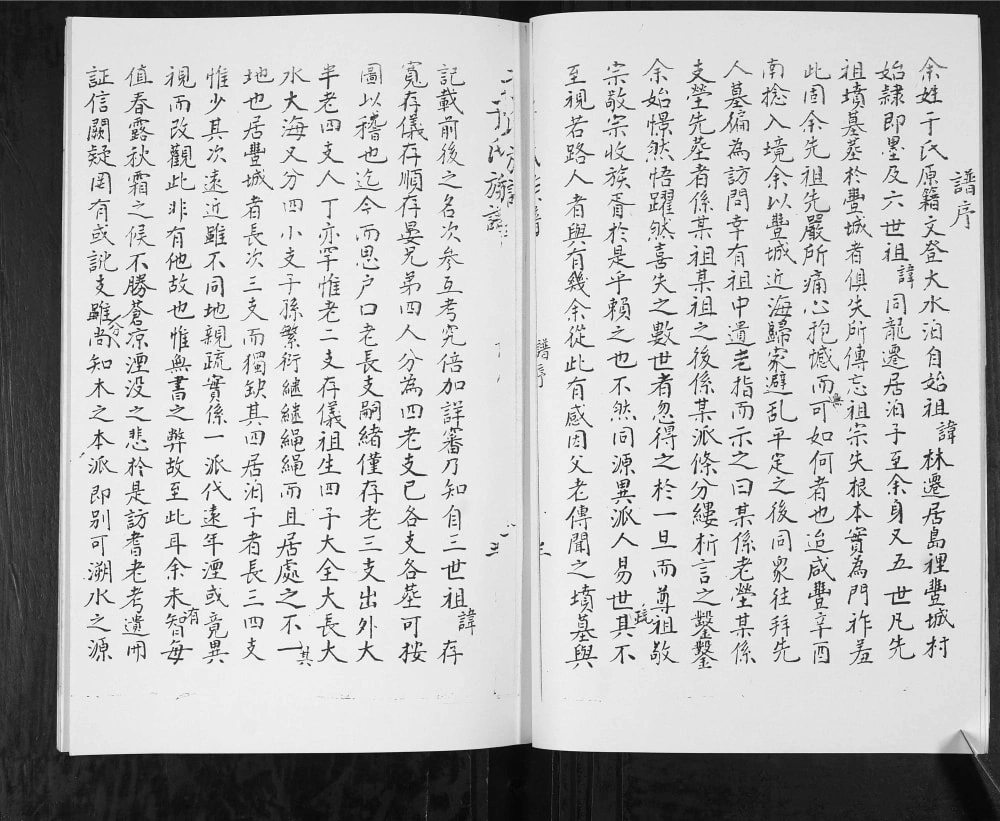 譜序
余姓于氏原籍文登大水泊自始祖諱林遷居島裡豐城村
始隸即墨及六世祖諱同龍遷居泊子至余身又五世凡先
祖墳墓基於豐城者俱失所傳忘祖宗失根本實為門祚羞
此固余先祖先嚴所痛心抱憾而無可如何者也迨咸豐辛酉
南捻入境余以豐城近海歸家避乱平定之後同眾往拜先
人墓徧為訪問幸有祖中遺老指而示之曰某係老塋某係
支塋先塟者係某祖某祖之後係某派條分縷析言之鑿鑿
余始憬然悟躍然喜失之數世者忽得之於一旦而尊祖敬
宗敬宗收族胥於是乎賴之也不然同源異派人易世疏其不
至視若路人者與有幾余從此有感因父老傳聞之墳墓與
譜序
三
氏族譜
記載前後之名次參互考究倍加詳審乃知自三世祖諱存
寬存儀存順存晏兄弟四人分為四老支已各支各塋可按
圖以稽也迄今而思户口老長支嗣緒僅存老三支出外大
半老四支人丁亦罕惟老二支存儀祖生四子大全大長大
水大海又分四小支子孫繁衍継継繩繩而且居處之不一其
地也居豐城者長次三支而獨缺其四居泊子者長三四支
惟少其次遠近雖不同地親疏實係一派代遠年湮或竟異
視而改觀此非有他故也惟無書之弊故至此耳余未智每
值春露秋霜之候不勝蒼凉湮没之悲於是訪耆老考遺冊
証信闕疑罔有或訛支雖分尚知木之本派即别可溯水之源